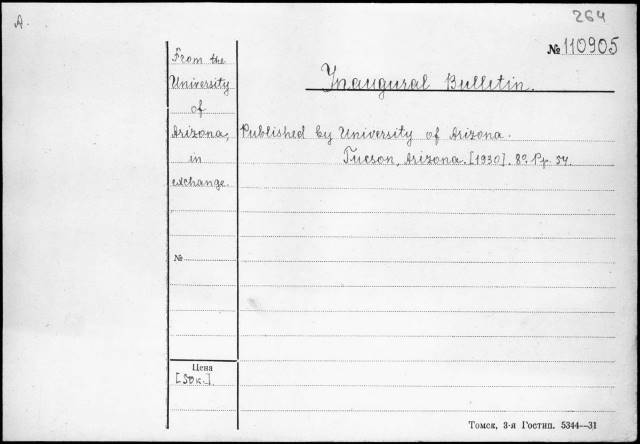 A.
264
№ 110905
Inaugural Bulletin.
From the
University
of
Arizona,
in
exchange.
Published by University of Arizona.
Tucson, Arizona. [1930]. 8°. Pp. 54.
№
Цена
[50к.].
Томск, 3-я Гостип. 5344—31